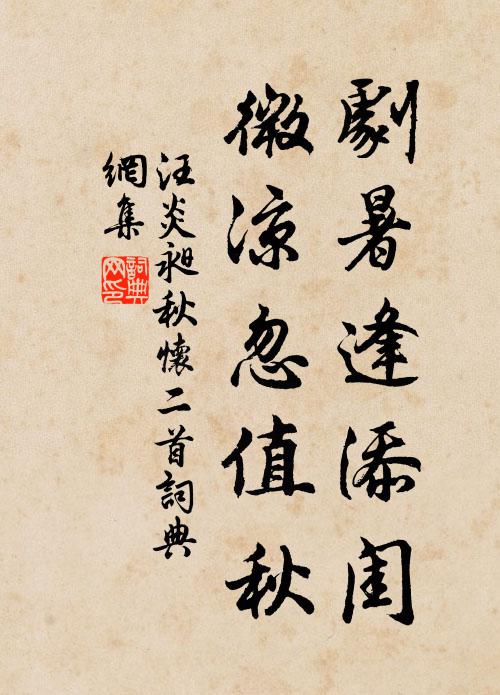 劇暑逢添閏
微涼忽值秋
汪炎昶秋懷二首詞典
網集
詞典
网印